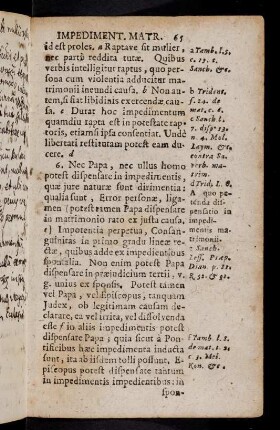 IMPEDIMENT. MATR. 65
id est proles. a Raptave sit mulier
nec parti reddita tutæ. Quibus
verbis intelligitur raptus, quo per-
sona cum violentia adducitur ma-
trimonii ineundi causa. b Non au-
tem, si fiat libidinis exercendæ cau-
sa. c Durat hoc impedimentum
quamdiu rapta est in potestate rap-
toris, etiamsi ipsa consentiat. Unde
libertati restitutam potest eam du-
cere. d
6. Nec Papa, nec ullus homo
potest dispensare in impedimentis,
quæ jure naturæ sunt dirimentia:
qualia sunt, Error personæ, liga-
men (potest tamen Papa dispensare
in matrimonio rato ex justa causa,
e) Impotentia perpetua, Consan-
guinitas in primo gradu lineæ rec-
tæ, quibus adde ex impedientibus
sponsalia. Non enim potest Papa
dispensare in præjudicium tertii, v.
g. unius ex sponsis. Potest tamen
vel Papa, vel Episcopus, tanquam
Judex, ob legitimam causam de-
clarare, ea vel irrita, vel dissolvenda
esse f in aliis impedimentis potest
dispensare Papa; quia sicut à Pon-
tificibus hæc impedimenta inducta
sunt, ita ab iisdem tolli possunt. E-
piscopus potest dispensare tantum
in impedimentis impedientibus: in
spon-
a Tamb. l. 5.
c. 13. 2.
Sanch. &c.
b Trident.
s. 24. de
mat. c. 6.
c Sanch l.
7. disp 13.
n. 4. Mol.
Laym. &c.
contra
d Trid, l. 6.
A quo po-
tenda di-
spensatio in
impedi-
mentis ma-
trimonii-
e Sanch.
Less. Prap.
Dian. p. 11.
f Tamb. l. 5.
de mat. t. 2.
c 5. Mei.
Ron. &c.